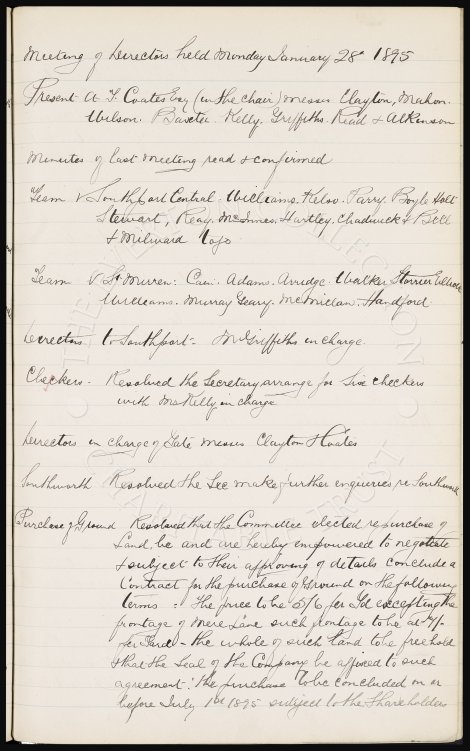 Meeting of Directors held Monday January 28th 1895
Present A. T. Coates Esq (in the Chair) Messrs Clayton, Mahon.
Wilson. Baxter. Kelly. Griffiths. Read & Atkinson
Minutes of last Meeting read & confirmed
Team v Southport Central. Williams. Kelso. Parry. Boyle Holt
Stewart, Reay. McInnes. Hartley. Chadwick & Bell
& Milward
Team v St Mirren: Cain. Adams. Arridge. Walker Storrier Elliott
Williams. Murray Geary. McMillan. Handford
Directors to Southport - Mr Griffiths in charge.
Checkers. Resolved the Secretary arrange for Six Checkers
with Mr Kelly in charge
Directors in charge of Gate Messrs Clayton & Coates
Southworth Resolved the Sec make further enquiries re Southworth
Purchase of Ground Resolved that the Committee elected re purchase of
Land, be and are hereby empowered to negotiate
& subject to their approving of details conclude a
Contract for the purchase of Ground on the following
terms :- The price to be 5/6 per Yd excepting the
frontage of Mere Lane such frontage to be at 7/-
per Yard - the whole of such land to be freehold
& that the Seal of the Company be affixed to such
agreement: the purchase to be concluded on or
before July 1st 1895 subject to the Shareholders
THE EVERTON COLLECTION
CHARITABLE TRUST